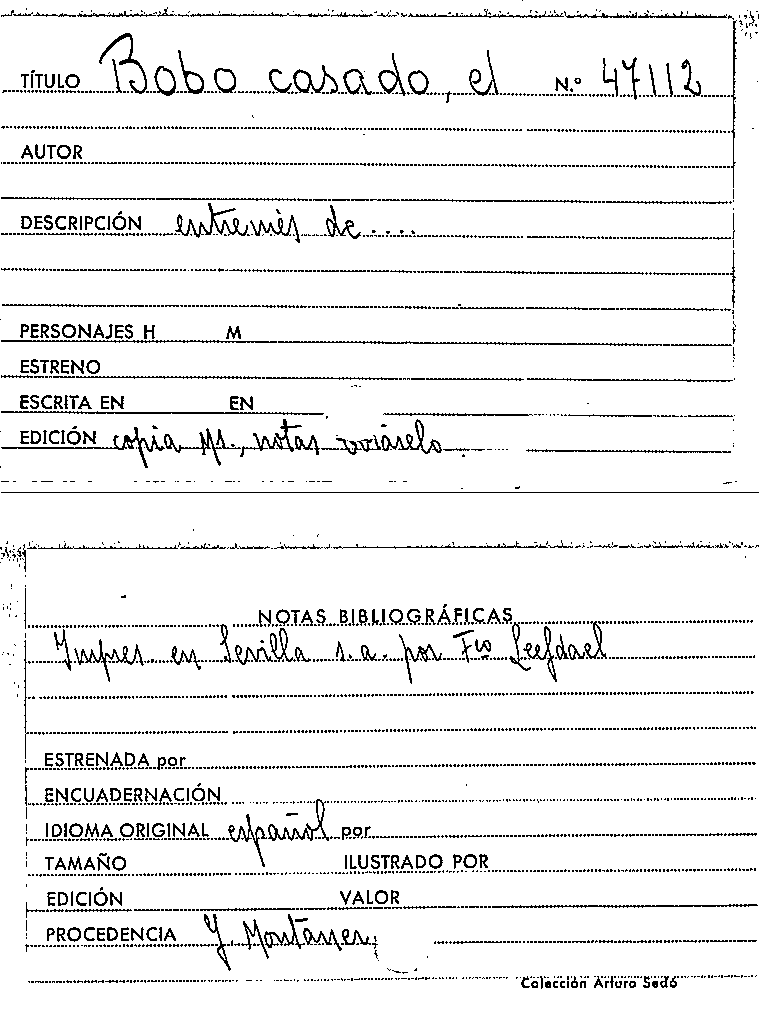 TÍTULO Bobo casado, el N.º 47112
AUTOR
DESCRIPCIÓN entremés de ....
PERSONAJES H M
ESTRENO
ESCRITA EN EN
EDICIÓN copia Ms., notas
NOTAS BIBLIOGRÁFICAS
Impres. en Sevilla s.a. por Fco Leefdael
ESTRENADA por
ENCUADERNACIÓN
IDIOMA ORIGINAL español por
TAMAÑO ILUSTRADO POR
EDICIÓN VALOR
PROCEDENCIA Y. Montaner,
Colección Arturo Sedó